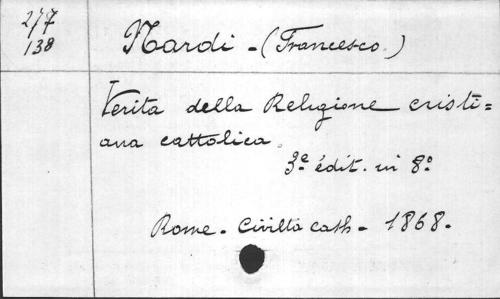 277
138
Nardi - (Francesco.)
Verita della Religione cristi=
ana cattolica.
3e édit. in 8o
Rome - Civilta cath - 1868.